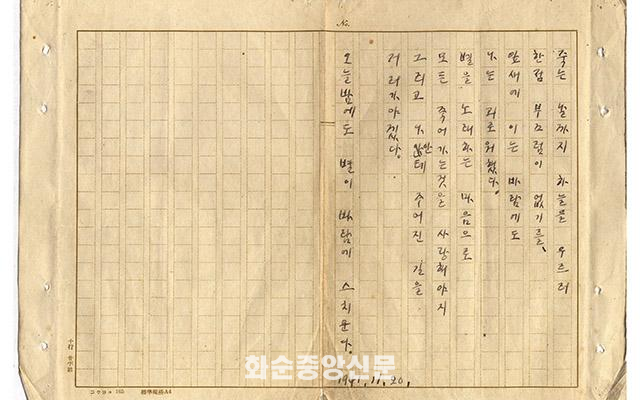 No.
죽는 날까지 하늘을 우르러
한점 부끄럼이 없기를,
잎새에 이는 바람에도
나는 괴로워했다.
별을 노래하는 마음으로
모든 죽어가는것을 사랑해야지
그리고 나안테 주어진 길을
거러가야겠다.
오늘밤에도 별이 바람에 스치운다.
1941.11.20.
コクヨ 165 標準規格A4
화순중앙신문